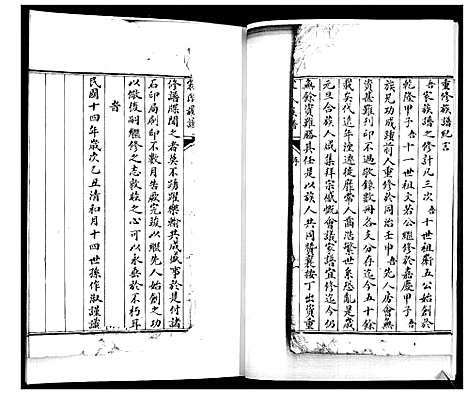 重修族譜紀言
吾家族譜之修計凡三次吾十世祖嵛五公始創於
乾隆甲子吾十一世祖文若公繼修於嘉慶甲子吾
族兄功成續前人重修於同治壬申吾先人唐會無
資甚難刊印不過敬錄數冊各支分存迄今五十餘
載矣代遠年湮遂從靡常人繭浩繁世系恐亂是歲
元旦合族人咸集拜宗慼慨會議家譜宜修迄今仍
無餘資難勝其任是以族人共同贊襄按丁出資重
修譜牒聞之者莫不踴躍樂輸共成盛事於是付諸
石印局刷印不數月告厥完璇以繼先人始創之功
以儆後嗣繼修之志敦睦之心可以永垂於不朽耳
岢
民國十四年歲次乙丑清和月十四世孫作猷謹識